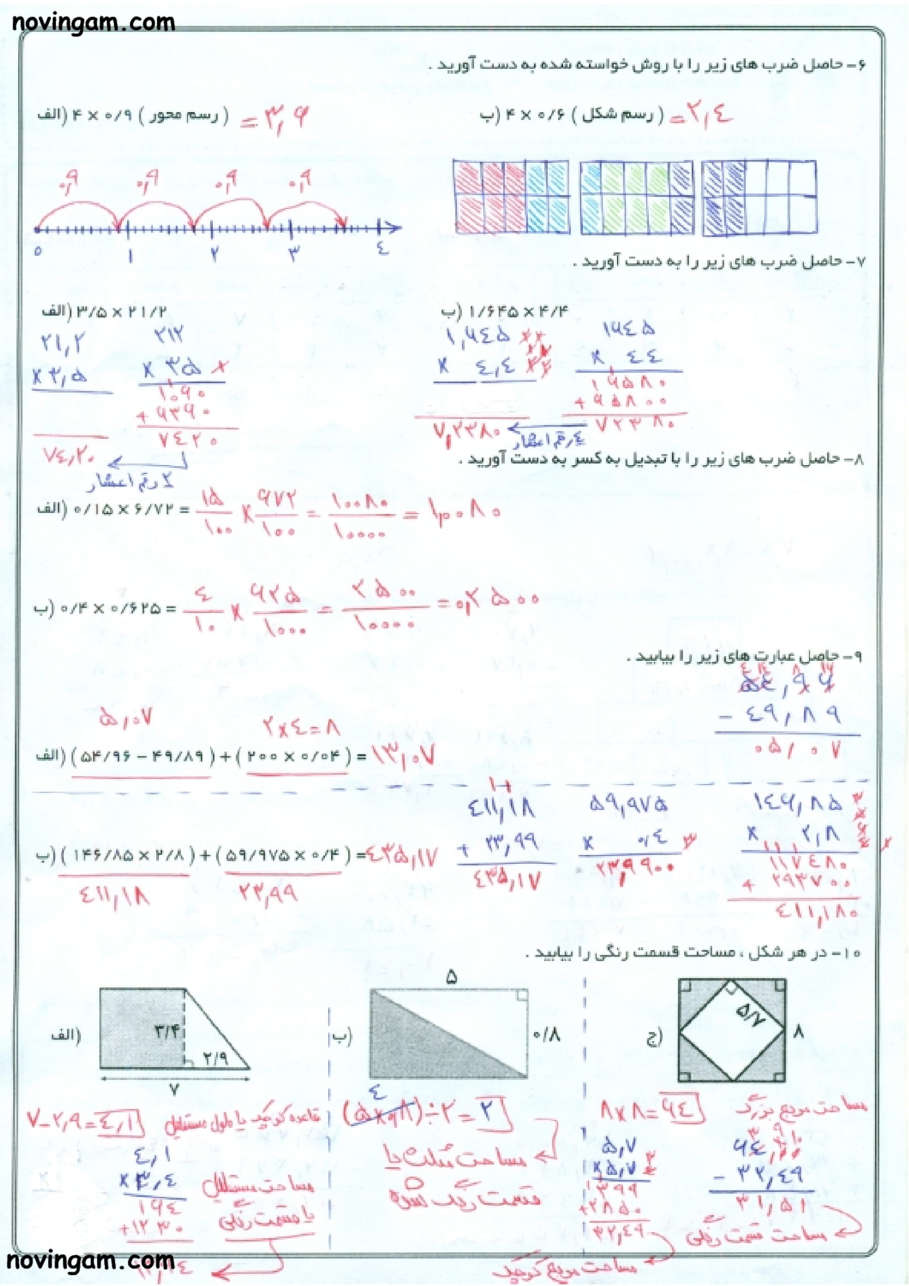 novingam.com
۶- حاصل ضرب های زیر را با روش خواسته شده به دست آورید .
الف) ۴ × ۰/۹ ( رسم محور ) = ۳,۶
ب) ۴ × ۰/۶ ( رسم شکل ) = ۲,٤
۰,۹ ۰,۹ ۰,۹ ۰,۹
۰ ۱ ۲ ۳ ٤
۷- حاصل ضرب های زیر را به دست آورید .
الف) ۳/۵ × ۲۱/۲
۲۱,۲
× ۳,۵
۷٤,۲۰
۲۱۲
× ۳۵
۱۰۶۰
+ ۶۳۶۰
۷٤۲۰
۲ رقم اعشار
ب) ۱/۶۴۵ × ۴/۴
۱,۶٤۵
× ٤,٤
۷,۲۳۸۰
۱۶٤۵
× ٤٤
۶۵۸۰
+ ۶۵۸۰۰
۷۲۳۸۰
٤ رقم اعشار
۸- حاصل ضرب های زیر را با تبدیل به کسر به دست آورید .
الف) ۰/۱۵ × ۶/۷۲ = ۱۵/۱۰۰ × ۶۷۲/۱۰۰ = ۱۰۰۸۰/۱۰۰۰۰ = ۱,۰۰۸۰
ب) ۰/۴ × ۰/۶۲۵ = ٤/۱۰ × ۶۲۵/۱۰۰۰ = ۲۵۰۰/۱۰۰۰۰ = ۰,۲۵۰۰
۹- حاصل عبارت های زیر را بیابید .
۵٤,۹۶
- ٤۹,۸۹
۰۵,۰۷
۵,۰۷
۲×٤=۸
الف) ( ۵۴/۹۶ − ۴۹/۸۹ ) + ( ۲۰۰ × ۰/۰۴ ) = ۱۳,۰۷
ب) ( ۱۴۶/۸۵ × ۲/۸ ) + ( ۵۹/۹۷۵ × ۰/۴ ) = ٤۳۵,۱۷
٤۱۱,۱۸
۲۳,۹۹
٤۱۱,۱۸
+ ۲۳,۹۹
٤۳۵,۱۷
۵۹,۹۷۵
× ۰,٤
۲۳,۹۹۰۰
۱٤۶,۸۵
× ۲,۸
۱۱۷٤۸۰
+ ۲۹۳۷۰۰
٤۱۱,۱۸۰
۱۰- در هر شکل ، مساحت قسمت رنگی را بیابید .
الف)
۳/۴
۲/۹
۷
۷-۲,۹=٤,۱
قاعده کوچک یا طول مستطیل
٤,۱
× ۳,٤
۱۶٤
+۱۲۳۰
مساحت مستطیل
یا قسمت رنگی
ب)
۵
۰/۸
٤
(۵×۰,۸)÷۲=۲
مساحت مثلث یا
قسمت رنگ شده
ج)
۵/۷
۸
۸×۸=۶٤
مساحت مربع بزرگ
۵,۷
×۵,۷
۳۹۹
+۲۸۵۰
۳۲,٤۹
مساحت مربع کوچک
۶٤,۰۰
- ۳۲,٤۹
۳۱,۵۱
مساحت قسمت رنگی
novingam.com